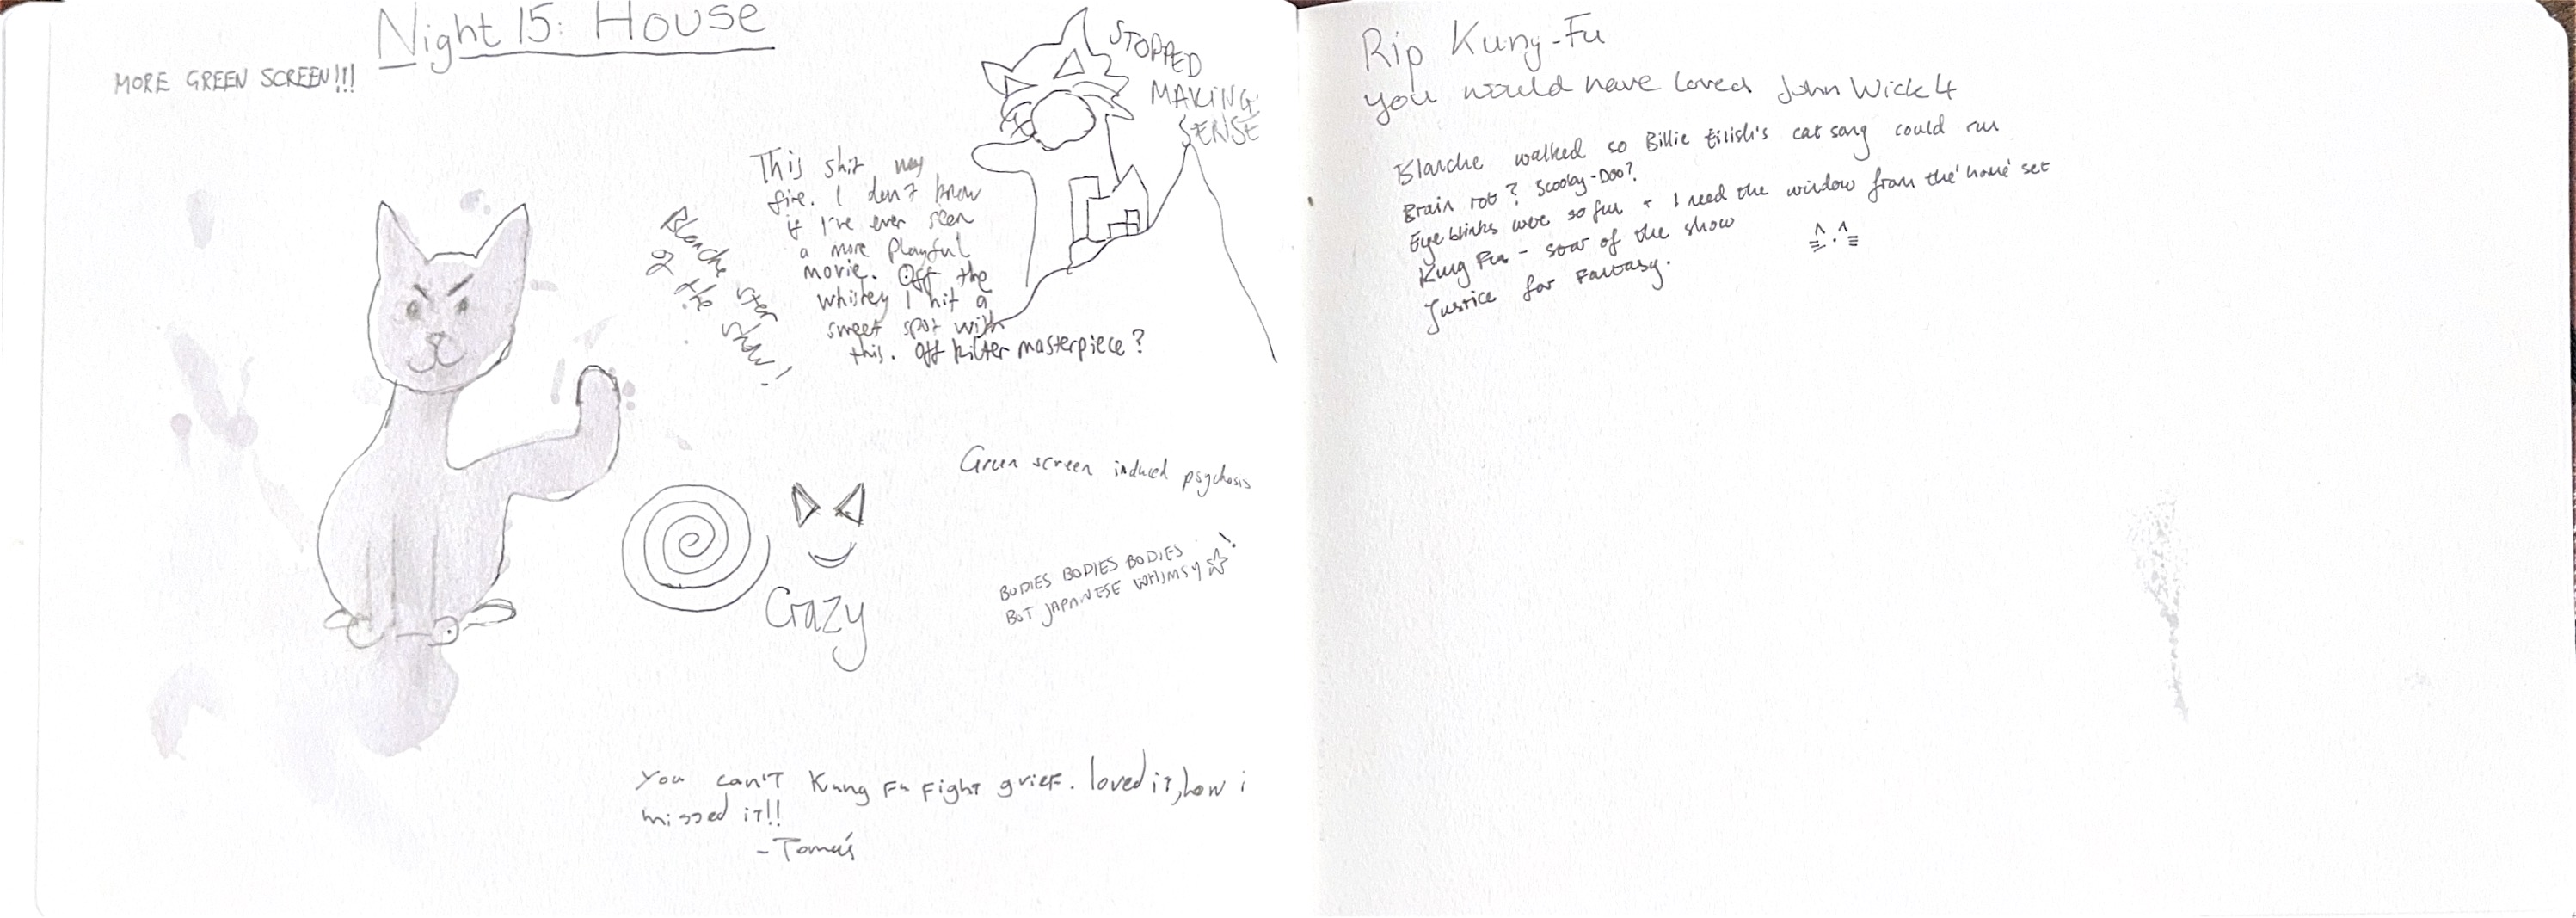 Night 15: House
MORE GREEN SCREEN!!!
STOPPED
MAKING
SENSE
This shit was
fire. I don't know
if I've ever seen
a more playful
movie. Off the
whiskey I hit a
sweet spot with
this. Off kilter masterpiece?
Blanche star
of the show!
Green screen induced psychosis
BODIES BODIES BODIES
BUT JAPANESE WHIMSY
Crazy
You can't Kung Fu Fight grief. loved it, how i
missed it!!
- Tomás
Rip Kung-Fu
you would have loved John Wick 4
Blanche walked so Billie Eilish's cat song could run
Brain rot? Scooby-Doo?
Eye blinks were so fun + I need the window from the 'home' set
Kung Fu - star of the show
Justice for Fantasy.